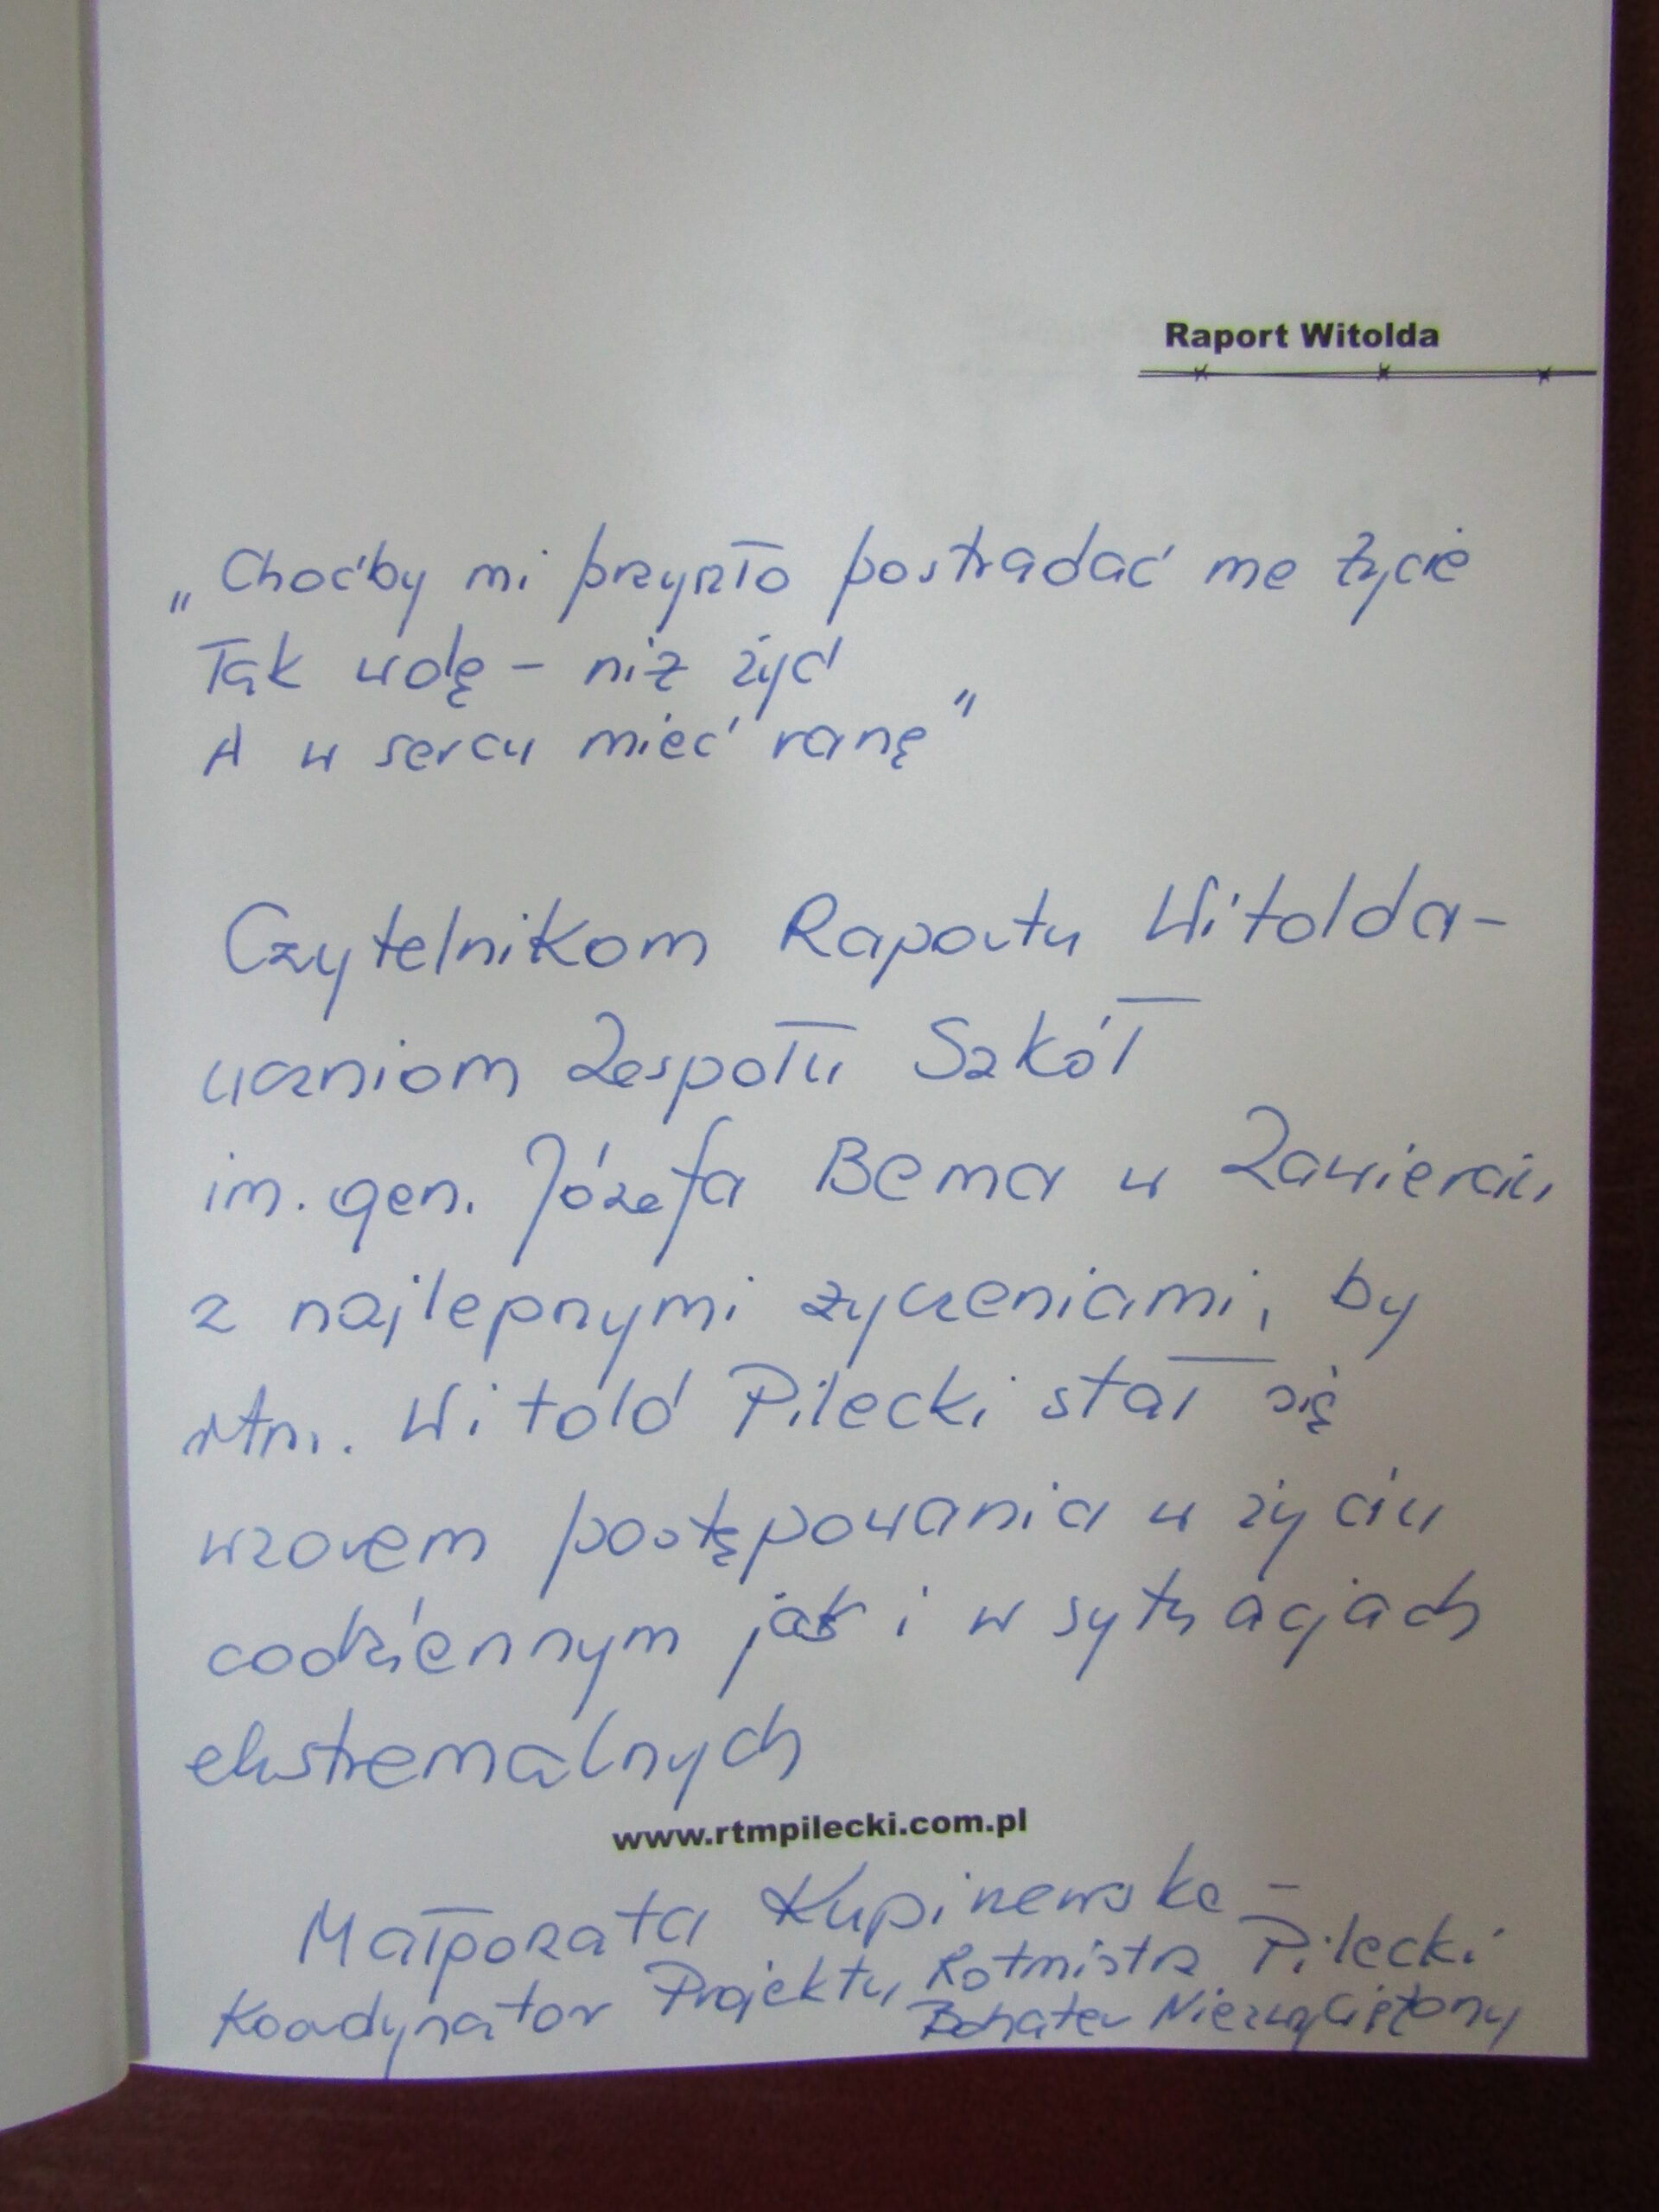 Raport Witolda
„Choćby mi przyszło postradać me życie
Tak wolę – niż żyć
A w sercu mieć ranę"
Czytelnikom Raportu Witolda –
uczniom Zespołu Szkół
im. gen. Józefa Bema w Zawierciu,
z najlepszymi życzeniami, by
rtm. Witold Pilecki stał się
wzorem postępowania w życiu
codziennym jak i w sytuacjach
ekstremalnych
www.rtmpilecki.com.pl
Małgorzata Kupiszewska –
Koordynator Projektu Rotmistrz Pilecki
Bohater Niezwyciężony